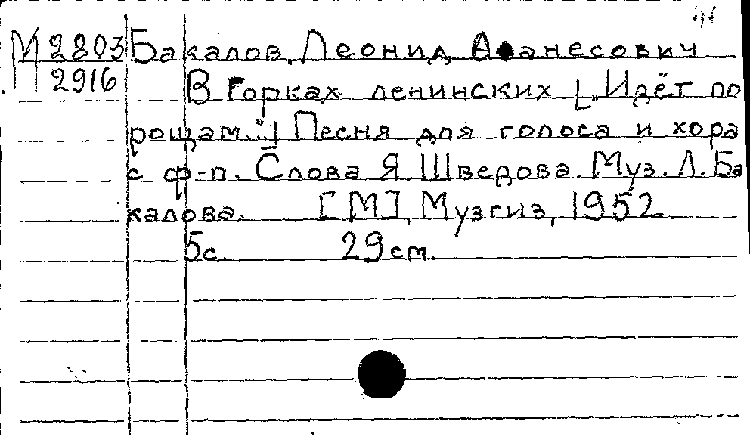 М 2803 Бакалов, Леонид Аванесович
П 2916 В Горках ленинских [„Идёт по
рощам..."] Песня для голоса и хора
с ф-п. Слова Я Шведова. Муз. Л. Ба
калова. [М], Музгиз, 1952
5с. 29см.